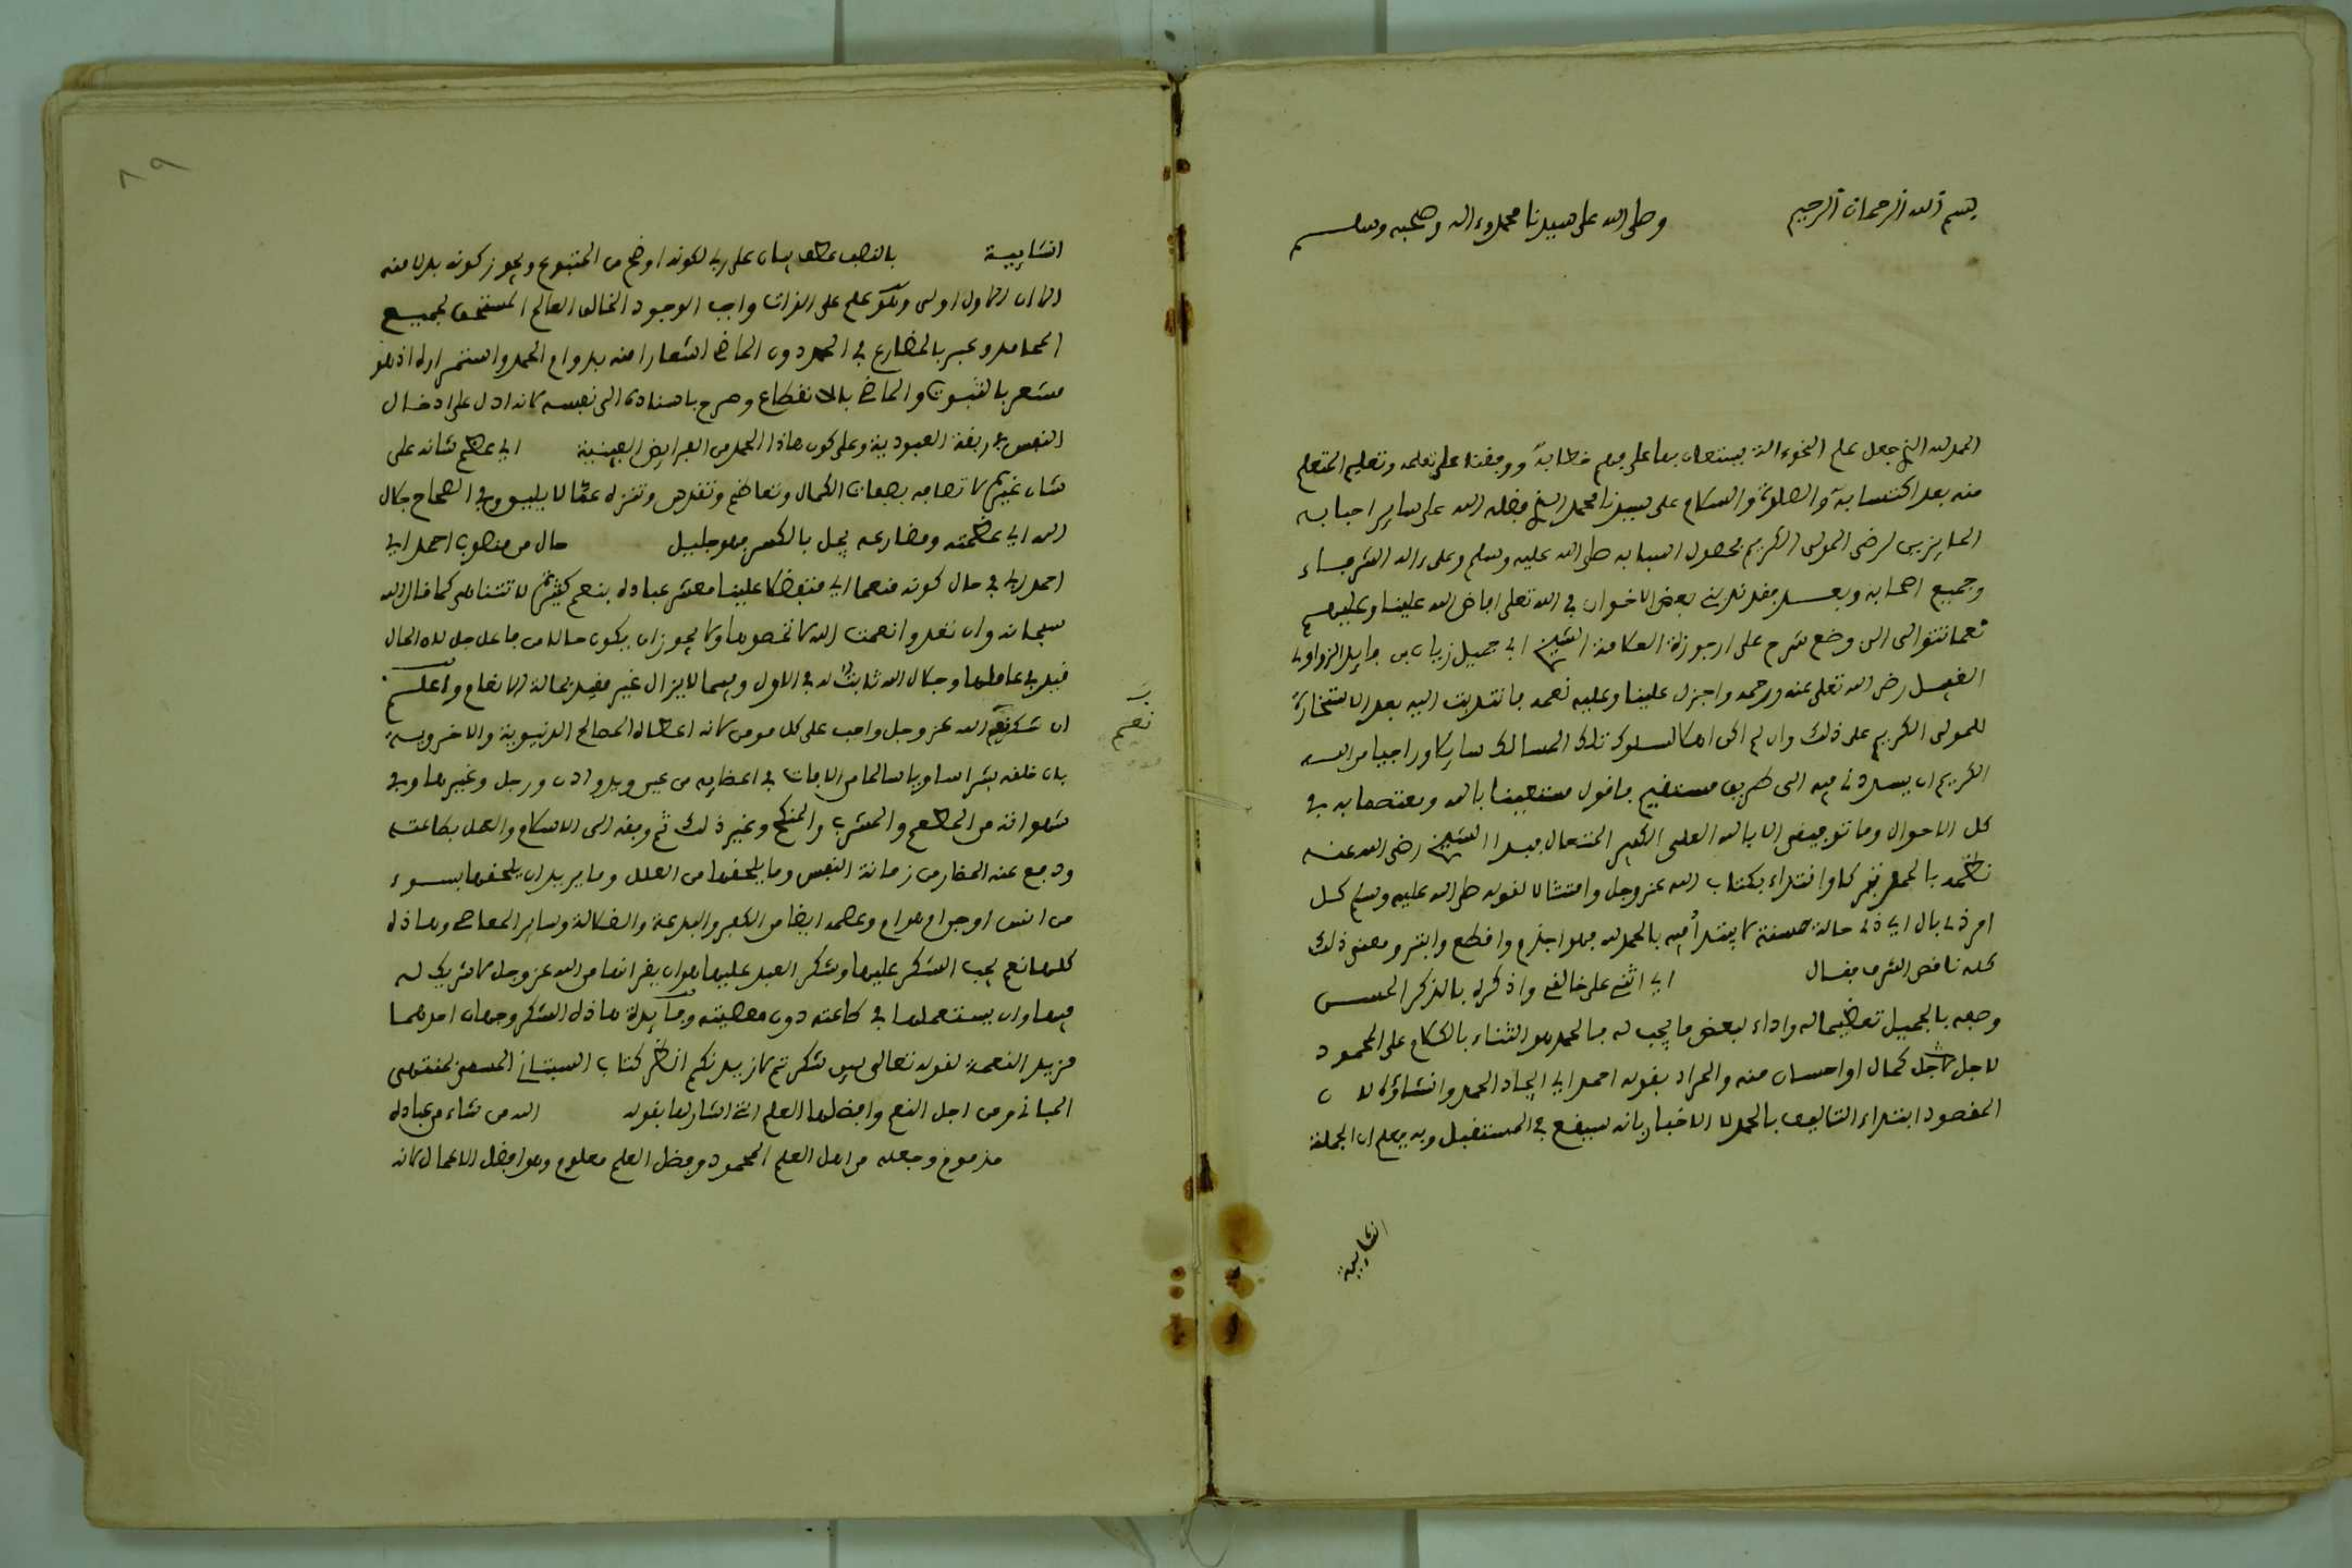 بسم الله الرحمان الرحيم وصلى الله على سيدنا محمد وءاله وصحبه وسلم
الحمد لله الذي جعل علم النحو ءالة يستعان بها على فهم خطابه ووفقنا على تعلمه وتعليم المتعلم
منه بعد اكتسابه والصلوة والسلام على سيدنا محمد الذي فضله الله على ساير احبابه
الحايزين لرضى المولى الكريم بحصول اسبابه صلى الله عليه وسلم وعلى ءاله الشرفاء
وجميع اصحابه وبعد فقد بعض الاخوان في الله تعلى افاض الله علينا وعليهم
نعما تتوالى الى وضع شرح على ارجوزة العلامة الشيخ ابي جميل زيان بن فايد الزواوي
رضى الله تعلى عنه ورحمه واجزل علينا وعليه نعمه فانتدبت اليه بعد الاستخارة
للمولى الكريم على ذلك وان لم اكن اهلا لسلوك تلك المسالك سايلا وراجيا من الله
الكريم ان يسددني فيه الى طريق مستقيم فاقول مستعينا بالله ومعتصما به في
كل الاحوال وما توفيقي الا بالله العلي الكبير المتعال مبدا الشيخ رضى الله عنه
نظمه بالحمد تبركا واقتداء بكتاب الله عز وجل وامتثالا لقوله صلى الله عليه وسلم كل
امر ذي بال اي ذي حالة حسنة لا يبتدأ فيه بالحمد لله فهو اجذم واقطع وابتر ومعنى ذلك
كله ناقص الشرف فقال اي اثني على خالقي واذكره بالذكر الحسن
وصفه بالجميل تعظيما له واداء لبعض ما يجب له فالحمد هو الثناء بالكلام على المحمود
لاجل كمال او احسان منه والمراد بقوله احمد اي ايجاد الحمد وانشاؤه لان
المقصود ابتداء التاليف بالحمد لا الاخبار بانه سيقع في المستقبل وبه يعلم ان الجملة
انشايية
انشايية بالنصب عطف بيان على ربي لكونه اوضح من المتبوع ويجوز كونه بدلا منه
الا ان الاول اولى وهو علم على الذات واجب الوجود الخالق العالم المستحق لجميع
المحامد وعبر بالمضارع في الحمد دون الماضي اشعارا منه بدوام الحمد واستمراره اذ هو
مشعر بالثبوت والماضي بالانقطاع وصرح باسناده الى نفسه لانه ادل على ادخال
النفس في ربقة العبودية وعلى كون هاذا الحمد من الفرايض العينية اي عظم شانه على
شان غيره لاتصافه بصفات الكمال وتعاظم وتقدس وتنزه عما لا يليق وفي الصحاح جلال
الله اي عظمته ومضارعه يجل بالكسر فهو جليل حال من منصوب احمد اي
احمد ربي في حال كونه منعما اي متفضلا علينا معشر عباده بنعم كثيرة لا تتناهى كما قال الله
سبحانه وان تعدوا نعمت الله لا تحصوها ولا يجوز ان يكون حالا من فاعل جل لان الحال
قيد في عاملها وجلال الله ثابت له في الازل وفيما لا يزال غير مقيد بحالة الانعام واعلم
ان شكر نعم الله عز وجل واجب على كل مومن لانه اعطاه المصالح الدنيوية والاخروية
نعم
بان خلقه بشرا سويا سالما من الافات في اعضايه من عين ويد واذن ورجل وغيرها وفي
شهواته من المطعم والمشرب والمنكح وغير ذلك ثم وفقه الى الاسلام والعمل بطاعته
ودفع عنه المضار من زمانة النفس وما يلحقها من العلل وما يريد ان يلحقها بسوء
من انس او جن او هوام وعصمه ايضا من الكفر والبدعة والضلالة وساير المعاصي وهاذه
كلها نعم يجب الشكر عليها وشكر العبد عليها هو ان يقر انها من الله عز وجل لا شريك له
فيها وان يستعملها في طاعته دون معصيته وفايدة هاذه الشكر وجهان احدهما
مزيد النعمة لقوله تعالى لين شكرتم لازيدنكم انظر كتاب
المباني ومن اجل النعم وافضلها العلم التي اشار لها بقوله الله من شاء من عباده
مذموم وجعله من اهل العلم المحمود وفضل العلم معلوم وهو افضل الاعمال لانه